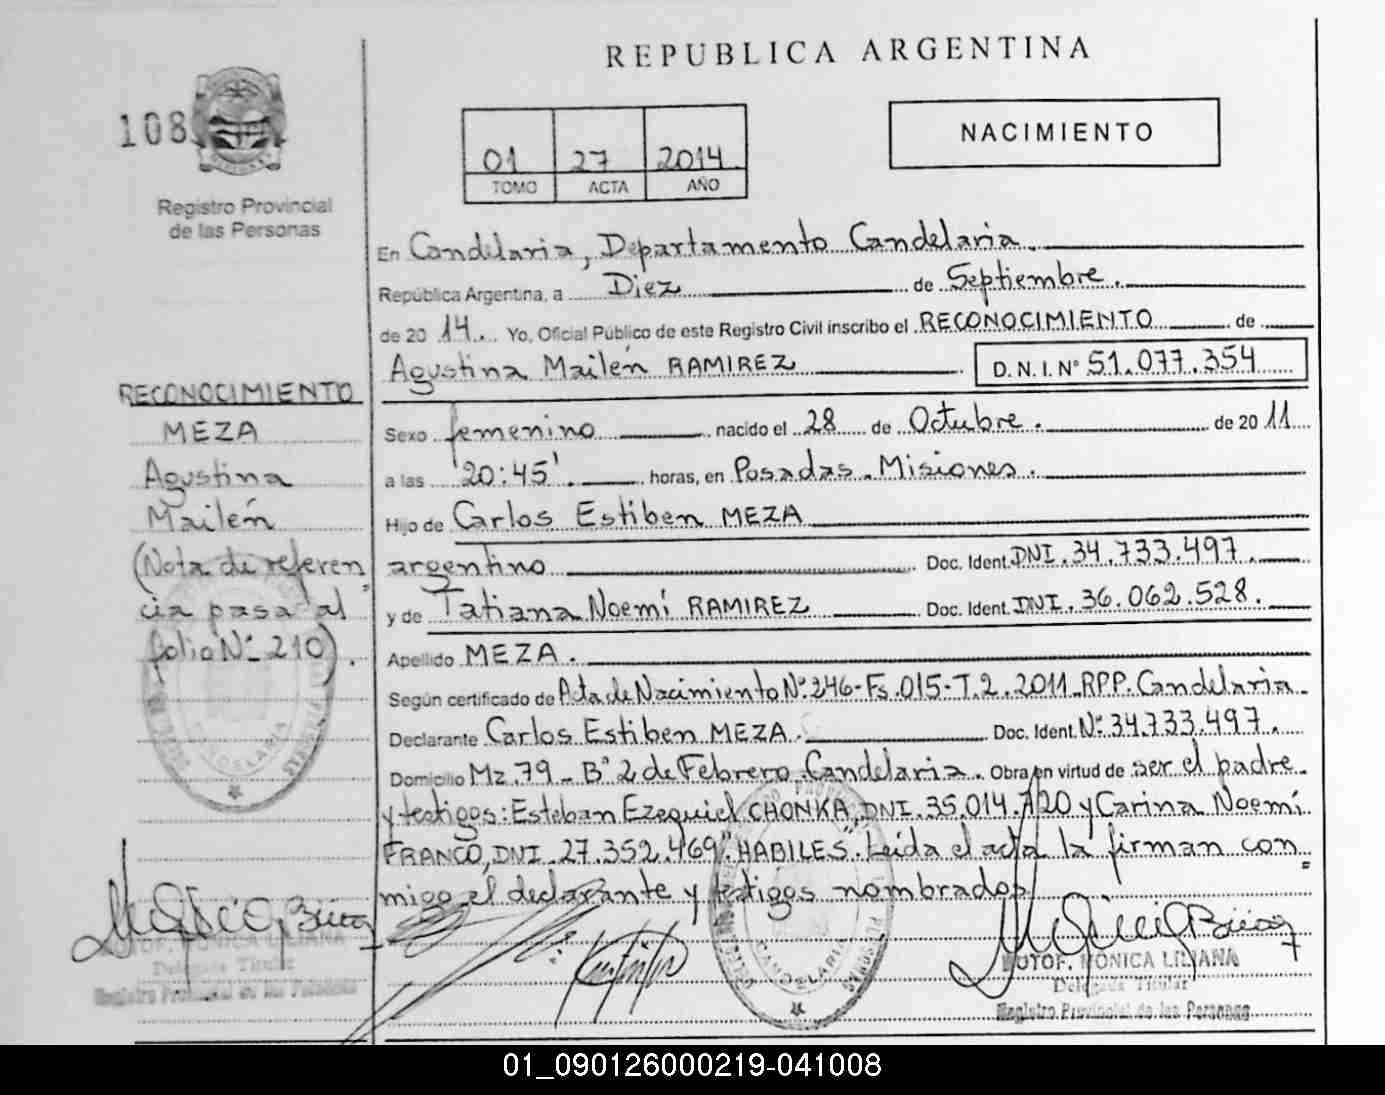 REPUBLICA ARGENTINA
108
Registro Provincial
de las Personas
01 27 2014
TOMO ACTA AÑO
NACIMIENTO
En Candelaria, Departamento Candelaria.
República Argentina, a Diez de Septiembre.
de 20 14. Yo, Oficial Público de este Registro Civil inscribo el RECONOCIMIENTO de
Agustina Mailén RAMIREZ D.N.I. Nº 51.077.354
RECONOCIMIENTO
MEZA
Agustina
Mailén
(Nota de referen
cia pasa al
folio Nº 210).
Sexo femenino nacido el 28 de Octubre. de 20 11
a las '20:45'. horas, en Posadas. Misiones.
Hijo de Carlos Estiben MEZA
argentino Doc. Ident. DNI. 34.733.497.
y de Tatiana Noemí RAMIREZ Doc. Ident. DNI. 36.062.528.
Apellido MEZA.
Según certificado de Acta de Nacimiento Nº 246-Fs.015-T.2.2011-RPP. Candelaria.
Declarante Carlos Estiben MEZA. Doc. Ident. Nº 34.733.497.
Domicilio Mz. 79 - Bº 2 de Febrero. Candelaria. Obra en virtud de ser el padre
y testigos: Esteban Ezequiel CHONKA, DNI. 35.014.720 y Carina Noemí
FRANCO, DNI. 27.352.469 "HABILES". Leída el acta la firman con
migo el declarante y testigos nombrados
CANDELARIA
CANDELARIA
MÓNICA LILIANA
Delegada Titular
Registro Provincial de las Personas
MÓNICA LILIANA
Delegada Titular
Registro Provincial de las Personas
01_090126000219-041008